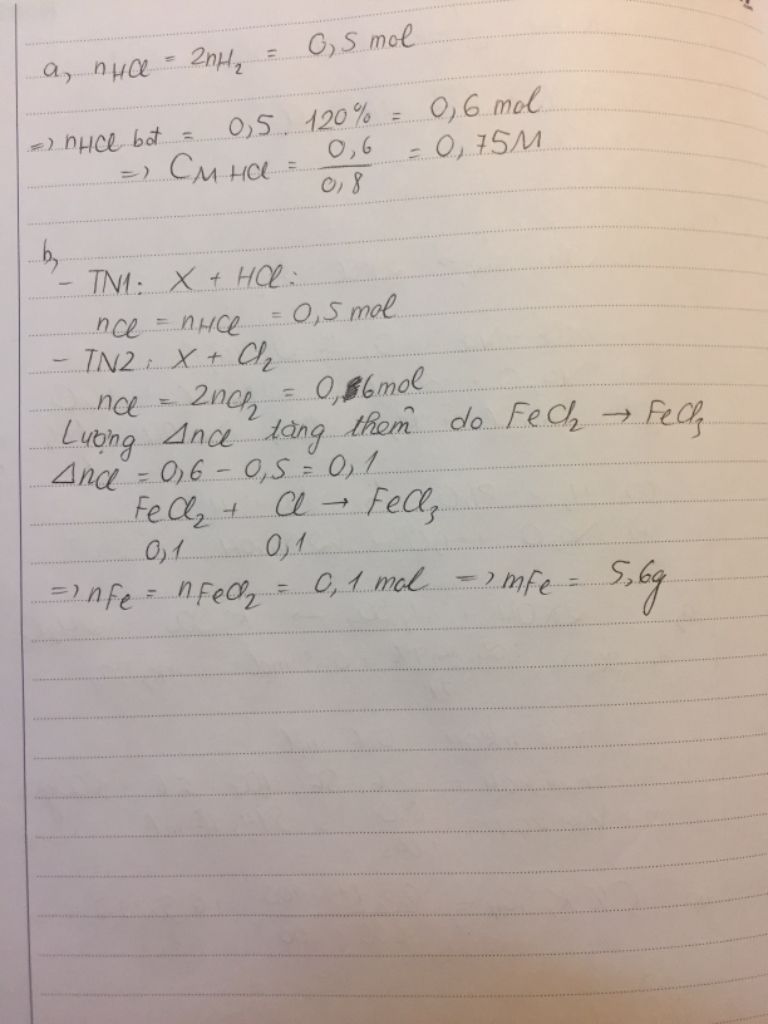 a, nHCl = 2nH2 = 0,5 mol
=> nHCl bđ = 0,5 . 120% = 0,6 mol
=> CM HCl = 0,6 / 0,8 = 0,75M
b,
- TN1: X + HCl:
nCl = nHCl = 0,5 mol
- TN2: X + Cl2
nCl = 2nCl2 = 0,6mol
Lượng Δncl tăng thêm do FeCl2 → FeCl3
Δncl = 0,6 - 0,5 = 0,1
FeCl2 + Cl → FeCl3
0,1 0,1
=> nFe = nFeCl2 = 0,1 mol => mFe = 5,6g